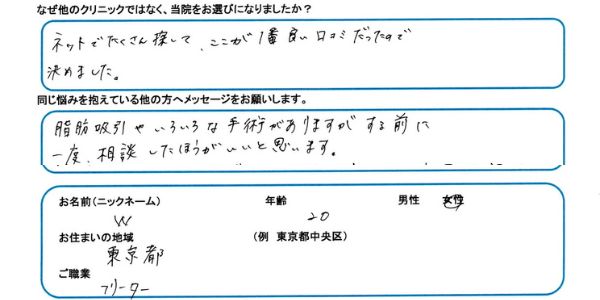 なぜ他のクリニックではなく、当院をお選びになりましたか？
ネットでたくさん探して、ここが1番良い口コミだったので
決めました。
同じ悩みを抱えている他の方へメッセージをお願いします。
脂肪吸引やいろいろな手術がありますがする前に
一度、相談したほうがいいと思います。
お名前（ニックネーム） 年齢 男性 女性
W 20
お住まいの地域 （例 東京都中央区）
東京都
ご職業
フリーター